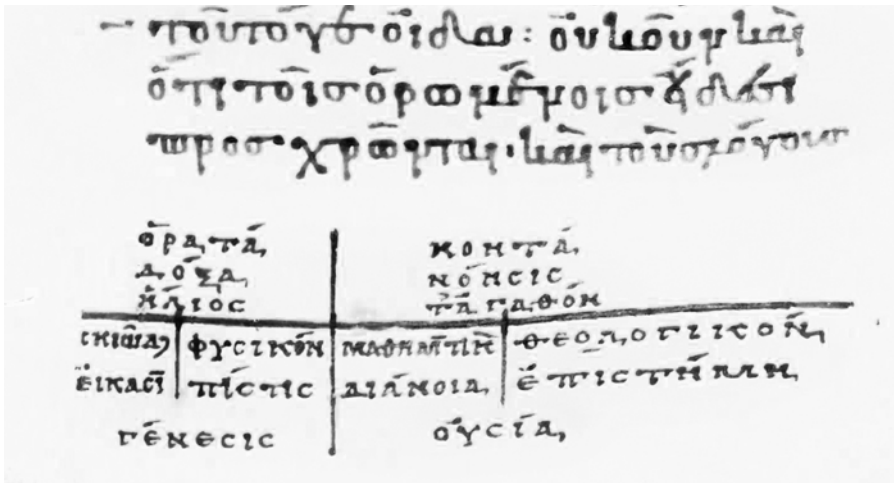 τοῦτό γε οἶδα: οὐκοῦν καὶ
ὅτι τοῖς ὁρωμένοις εἴδεσι
προσχρῶνται· καὶ τοὺς λόγους
ὁρατά, νοητά,
δόξα, νόησις
ἥλιος τἀγαθόν
φυσικόν μαθηματικ θεολογικόν,
εἰκασί πίστις διάνοια, ἐπιστήμη,
γένεσις οὐσία,